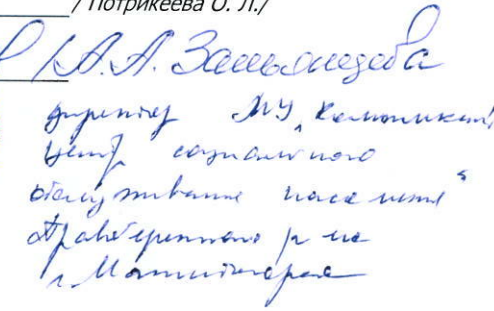 / Потрикеева О. Л./
/ А.А.
директор МУ „Комплексный
центр социального
обслуживания населения"
Правобережного р-на
г. Магнитогорска